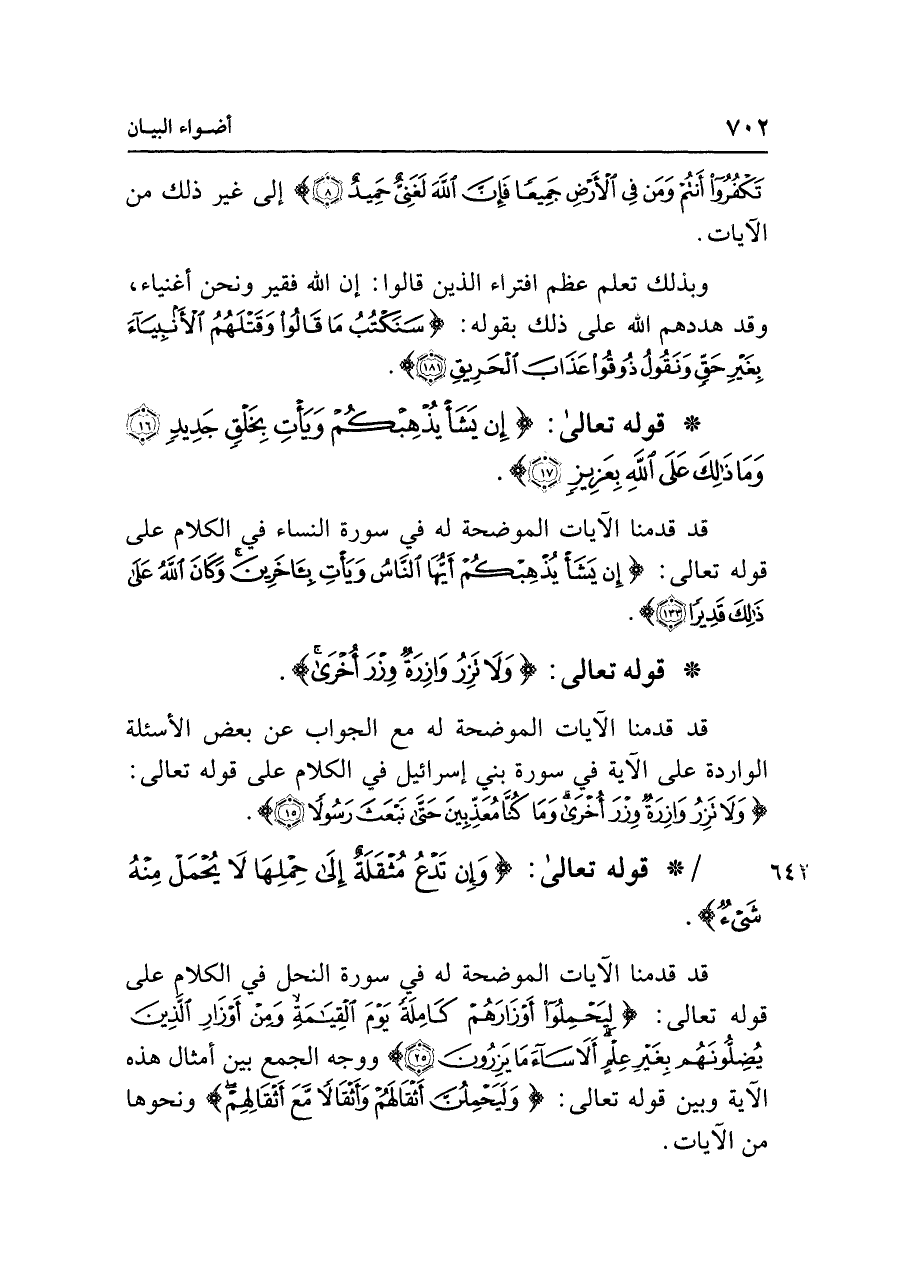 ٧٠٢ أضواء البيان
تَكْفُرُوٓا۟ أَنتُمْ وَمَن فِى ٱلْأَرْضِ جَمِيعًا فَإِنَّ ٱللَّهَ لَغَنِىٌّ حَمِيدٌ ﴿٨﴾﴾ إلى غير ذلك من
الآيات.
وبذلك تعلم عظم افتراء الذين قالوا: إن الله فقير ونحن أغنياء،
وقد هددهم الله على ذلك بقوله: ﴿سَنَكْتُبُ مَا قَالُوا۟ وَقَتْلَهُمُ ٱلْأَنۢبِيَآءَ
بِغَيْرِ حَقٍّ وَنَقُولُ ذُوقُوا۟ عَذَابَ ٱلْحَرِيقِ ﴿١٨١﴾﴾.
* قوله تعالىٰ: ﴿إِن يَشَأْ يُذْهِبْكُمْ وَيَأْتِ بِخَلْقٍ جَدِيدٍ ﴿١٦﴾
وَمَا ذَٰلِكَ عَلَى ٱللَّهِ بِعَزِيزٍ ﴿١٧﴾﴾.
قد قدمنا الآيات الموضحة له في سورة النساء في الكلام على
قوله تعالى: ﴿إِن يَشَأْ يُذْهِبْكُمْ أَيُّهَا ٱلنَّاسُ وَيَأْتِ بِـَٔاخَرِينَ ۚ وَكَانَ ٱللَّهُ عَلَىٰ
ذَٰلِكَ قَدِيرًا ﴿١٣٣﴾﴾.
* قوله تعالى: ﴿وَلَا تَزِرُ وَازِرَةٌ وِزْرَ أُخْرَىٰ ۚ﴾.
قد قدمنا الآيات الموضحة له مع الجواب عن بعض الأسئلة
الواردة على الآية في سورة بني إسرائيل في الكلام على قوله تعالى:
﴿وَلَا تَزِرُ وَازِرَةٌ وِزْرَ أُخْرَىٰ ۗ وَمَا كُنَّا مُعَذِّبِينَ حَتَّىٰ نَبْعَثَ رَسُولًا ﴿١٥﴾﴾.
٦٤٢ / * قوله تعالىٰ: ﴿وَإِن تَدْعُ مُثْقَلَةٌ إِلَىٰ حِمْلِهَا لَا يُحْمَلْ مِنْهُ
شَىْءٌ﴾.
قد قدمنا الآيات الموضحة له في سورة النحل في الكلام على
قوله تعالى: ﴿لِيَحْمِلُوٓا۟ أَوْزَارَهُمْ كَامِلَةً يَوْمَ ٱلْقِيَـٰمَةِ ۙ وَمِنْ أَوْزَارِ ٱلَّذِينَ
يُضِلُّونَهُم بِغَيْرِ عِلْمٍ ۗ أَلَا سَآءَ مَا يَزِرُونَ ﴿٢٥﴾﴾ ووجه الجمع بين أمثال هذه
الآية وبين قوله تعالى: ﴿وَلَيَحْمِلُنَّ أَثْقَالَهُمْ وَأَثْقَالًا مَّعَ أَثْقَالِهِمْ ۖ﴾ ونحوها
من الآيات.